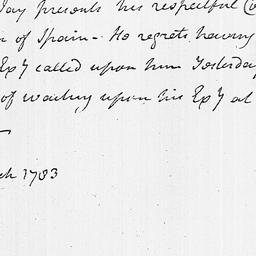 Jay presents his respectful
of Spain - He regrets having
Exy called upon him Yesterday
of waiting upon his Exy at
ch 1783